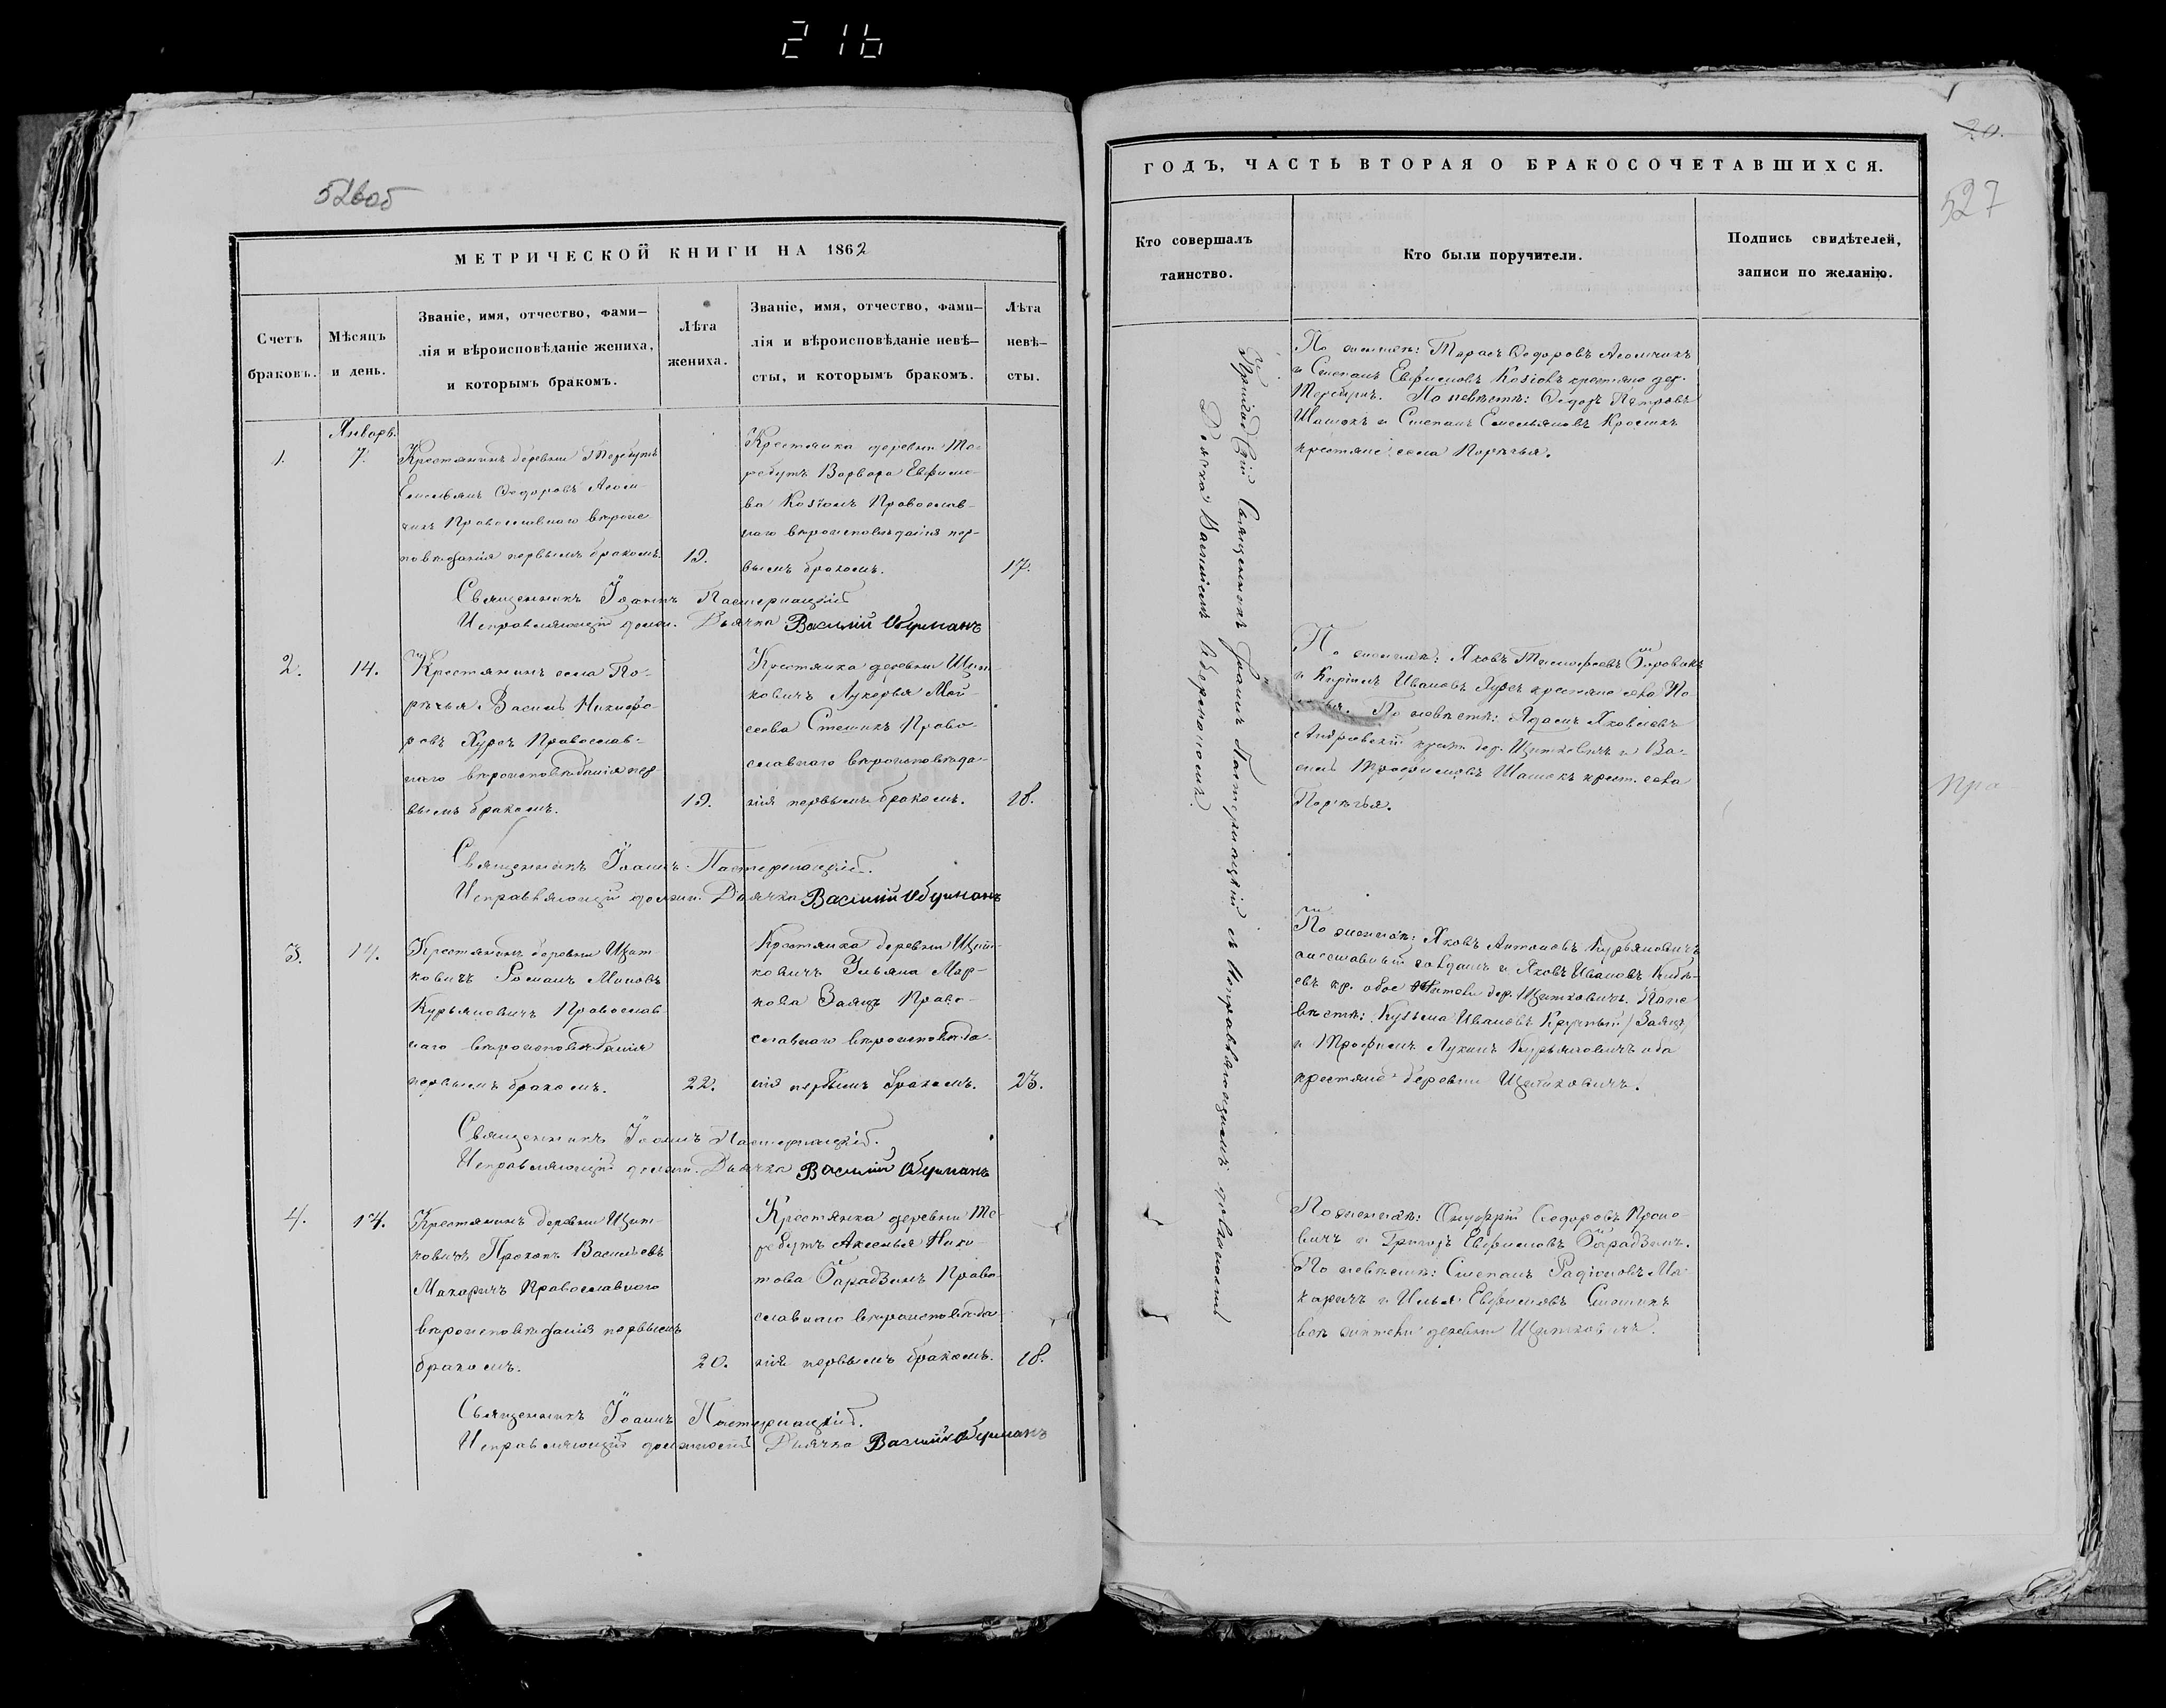 216
526об
МЕТРИЧЕСКОЙ КНИГИ НА 1862
Счетъ
браковъ.
Мѣсяцъ
и день.
Званіе, имя, отчество, фами—
лія и вѣроисповѣданіе жениха,
и которымъ бракомъ.
Лѣта
жениха.
Званіе, имя, отчество, фами—
лія и вѣроисповѣданіе невѣ—
сты, и которымъ бракомъ.
Лѣта
невѣ—
сты.
Январь.
1.
7.
Крестьянинъ деревни Теребутъ
Емельянъ Ѳедоровъ
Православнаго вѣроис
повѣданія первымъ бракомъ.
19.
Крестьянка деревни Те-
ребутъ Варвара Евфимо-
ва Православ-
наго вѣроисповѣданія пер-
вымъ бракомъ.
17.
Священникъ Іоаннъ Пастернацкій
Исправляющій долж. Дьячка Василій
2.
14.
Крестьянинъ села По-
рѣчья Василь Никифо-
ровъ Хурсъ Православ-
наго вѣроисповѣданія пер-
вымъ бракомъ.
19.
Крестьянка деревни Щит-
ковичъ Лукерья Мой-
сеева Православ-
славнаго вѣроисповѣда-
нія первымъ бракомъ.
18.
Священникъ Іоаннъ Пастернацкій.
Исправляющій должн. Дьячка Василій
3.
14.
Крестьянинъ деревни Щит
ковичъ Романъ Миновъ
Курьяновичъ Православ
наго вѣроисповѣданія
первымъ бракомъ.
22.
Крестьянка деревни Щит-
ковичъ Ульяна Мар-
кова Заяцъ Право-
славнаго вѣроисповѣда-
нія первымъ бракомъ.
23.
Священникъ Іоаннъ Пастернацкій.
Исправляющій должн. Дьячка Василій
4.
14.
Крестьянинъ деревни Щит-
ковичъ Прокопъ Васильевъ
Макаричъ Православнаго
вѣроисповѣданія первымъ
бракомъ.
20.
Крестьянка деревни Те-
ребутъ Аксенья Ники-
това Право-
славнаго вѣроисповѣда
нія первымъ бракомъ.
18.
Священникъ Іоаннъ Пастернацкій.
Исправляющій должность Дьячка Василій
20.
527
ГОДЪ, ЧАСТЬ ВТОРАЯ О БРАКОСОЧЕТАВШИХСЯ.
Кто совершалъ
таинство.
Кто были поручители.
Подпись свидѣтелей,
записи по желанію.
Приходскій Священникъ Іоаннъ Пастернацкій съ Исправляющимъ должность
Дьячка Василіемъ
По женихѣ: Тарасъ Ѳедоровъ
и Степанъ Евфимовъ крестьяне дер.
Теребутъ. По невѣстѣ: Ѳедоръ Петровъ
Шашокъ и Степанъ Емельяновъ
крестьяне села Порѣчья.
По женихѣ: Яковъ Тимофеевъ
и Кириллъ Ивановъ Хурсъ крестьяне села По
рѣчья. По невѣстѣ: Адамъ Яковлевъ
крест. дер. Щитковичъ и Ва-
силь Трофимовъ Шашокъ крест. села
Порѣчья.
По женихѣ: Яковъ Антоновъ Курьяновичъ
отставный солдатъ и Яковъ Ивановъ
кр. обое жители дер. Щитковичъ. По не
вѣстѣ: Кузьма Ивановъ Заяцъ
и Трофимъ Лукинъ Курьяновичъ оба
крестьяне деревни Щитковичъ.
По женихѣ: Онуфрій Ѳедоровъ
и Григоръ Евфимовъ
По невѣстѣ: Степанъ Радіоновъ Ма-
каричъ и Илья Евфимовъ
всѣ жители деревни Щитковичъ.